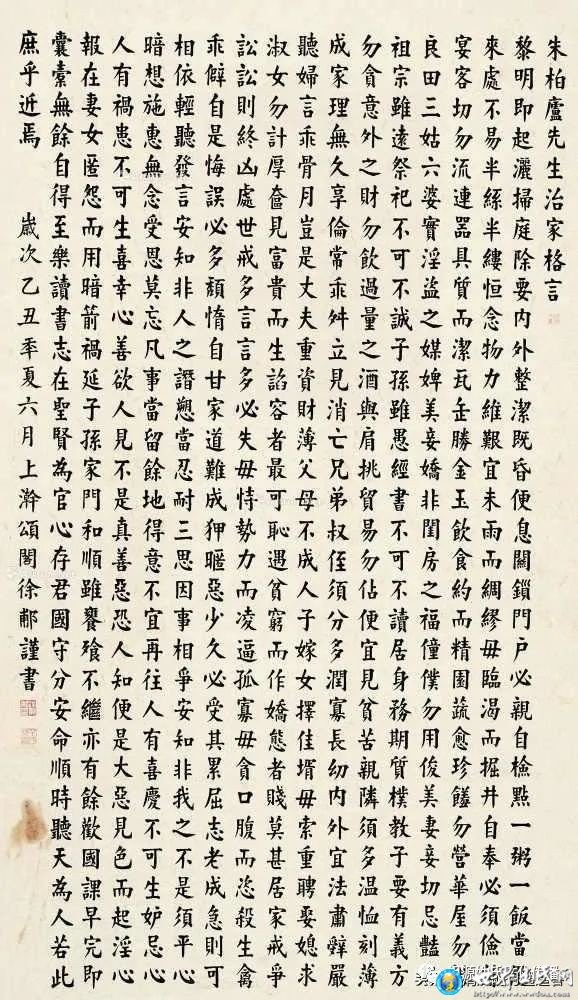 朱柏廬先生治家格言
黎明即起灑掃庭除要内外整潔既昏便息關鎖門户必親自檢點一粥一飯當
來處不易半絲半縷恒念物力維艱宜未雨而綢繆毋臨渴而掘井自奉必須儉
宴客切勿流連器具質而潔瓦缶勝金玉飲食約而精園蔬愈珍饈勿營華屋勿
良田三姑六婆實淫盜之媒婢美妾嬌非閨房之福僮僕勿用俊美妻妾切忌豔
祖宗雖遠祭祀不可不誠子孫雖愚經書不可不讀居身務期質樸教子要有義方
勿貪意外之財勿飲過量之酒與肩挑貿易勿佔便宜見貧苦親隣須多温恤刻薄
成家理無久享倫常乖舛立見消亡兄弟叔侄須分多潤寡長幼内外宜法肅辭嚴
聽婦言乖骨月豈是丈夫重資財薄父母不成人子嫁女擇佳壻毋索重聘娶媳求
淑女勿計厚奩見富貴而生諂容者最可恥遇貧窮而作嬌態者賤莫甚居家戒爭
訟訟則終凶處世戒多言言多必失毋恃勢力而凌逼孤寡毋貪口腹而恣殺生禽
乖僻自是悔誤必多頹惰自甘家道難成狎暱惡少久必受其累屈志老成急則可
相依輕聽發言安知非人之譖愬當忍耐三思因事相爭安知非我之不是須平心
暗想施惠無念受恩莫忘凡事當留餘地得意不宜再往人有喜慶不可生妒忌心
人有禍患不可生喜幸心善欲人見不是真善惡恐人知便是大惡見色而起淫心
報在妻女匿怨而用暗箭禍延子孫家門和順雖饔飧不繼亦有餘歡國課早完即
囊橐無餘自得至樂讀書志在聖賢為官心存君國守分安命順時聽天為人若此
庶乎近焉 歲次乙丑季夏六月上澣頌閣徐郙謹書